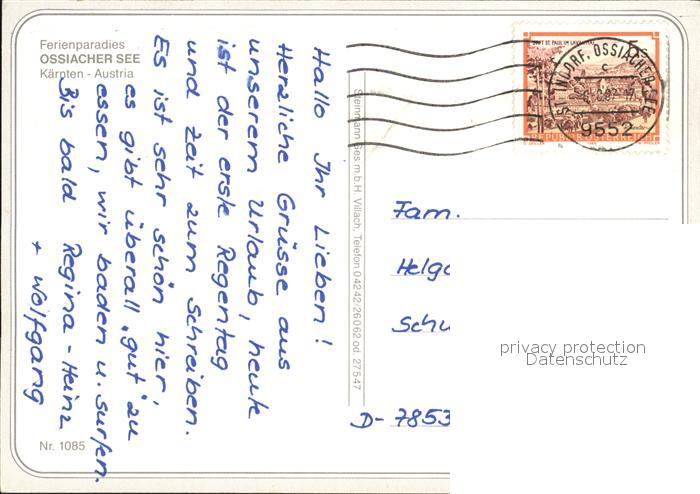 Ferienparadies
OSSIACHER SEE
Kärnten - Austria
Hallo Ihr Lieben!
Herzliche Grüsse aus
unserem Urlaub, heute
ist der erste Regentag
und Zeit zum Schreiben.
Es ist sehr schön hier,
es gibt überall "gut" zu
essen, wir baden u. surfen.
Bis bald Regina - Heinz
+ Wolfgang
Nr. 1085
Steinmann Ges.m.b.H. Villach, Telefon 04242/26062 od. 27547
STIFT ST. PAUL IM LAVANTTAL
REPUBLIK ÖSTERREICH
OSSIACHER SEE
9552
Fam.
Helga
Schu
D- 7853
privacy protection
Datenschutz